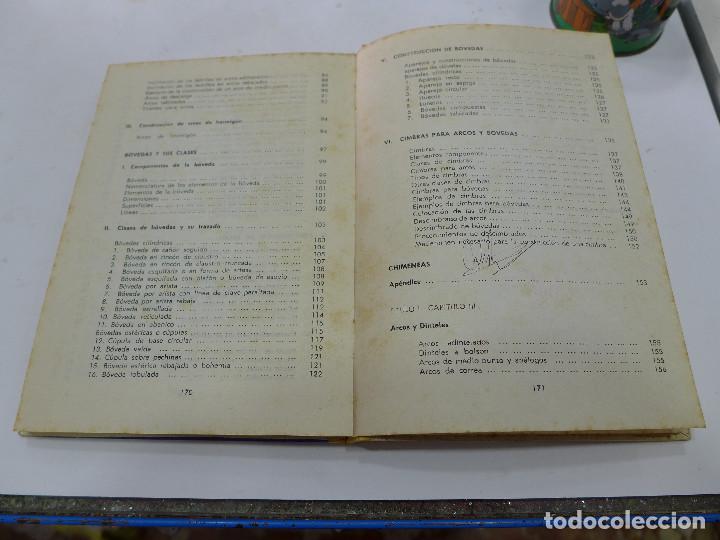 Arcos de descarga
Arcos rebajados
III. Construcción de arcos de hormigón 94
Arcos de hormigón 94
BOVEDAS Y SUS CLASES 97
I. Componentes de la bóveda 99
Bóveda 99
Nomenclatura de los elementos de la bóveda 100
Elementos de la bóveda 101
Dimensiones 101
Superficies 101
Líneas 102
II. Clases de bóvedas y su trazado 103
Bóvedas cilíndricas 103
1. Bóveda de cañón seguido 104
2. Bóveda en rincón de claustro 106
3. Bóveda en rincón de claustro truncada 107
4. Bóveda esquifada o en forma de artesa 108
5. Bóveda esquifada con plafón o bóveda de espejo 108
6. Bóveda por arista 109
7. Bóveda por arista con línea de clave peraltada 111
8. Bóveda por arista rebaja 112
9. Bóveda estrellada 113
10. Bóveda reticulada 114
11. Bóveda en abanico 115
Bóvedas esféricas o cúpulas 115
12. Cúpula de base circular 117
13. Bóveda vaída 119
14. Cúpula sobre pechinas 121
15. Bóveda esférica rebajada o bohemia 121
16. Bóveda lobulada 122
170
V. CONSTRUCCION DE BOVEDAS
Aparejos y construcciones de bóvedas
Aparejos de bóvedas
Bóvedas cilíndricas
1. Aparejo recto
2. Aparejo en espiga
3. Aparejo circular
4. Huecos
5. Lunetos
6. Bóvedas compuestas
7. Bóvedas tabicadas
VI. CIMBRAS PARA ARCOS Y BOVEDAS
Cimbras
Elementos componentes 137
Clases de cimbras 137
Cimbras para arcos 137
Tipos de cimbras 138
Otras clases de cimbras 140
Cimbras para bóvedas 141
Ejemplos de cimbras 143
Ejemplos de cimbras para bóvedas 144
Colocación de las cimbras 144
Descimbrado de arcos 149
Descimbrado de bóvedas 149
Procedimientos de descimbrado 150
Mecanismo necesario para la construcción de una bóveda 152
CHIMENEAS
Apéndice 153
TITULO I - CAPITULO III
Arcos y Dinteles
Arcos adintelados 155
Dinteles a bolson 155
Arcos de medio punto y análogos 155
Arcos de correa 156
171
todocoleccion.net